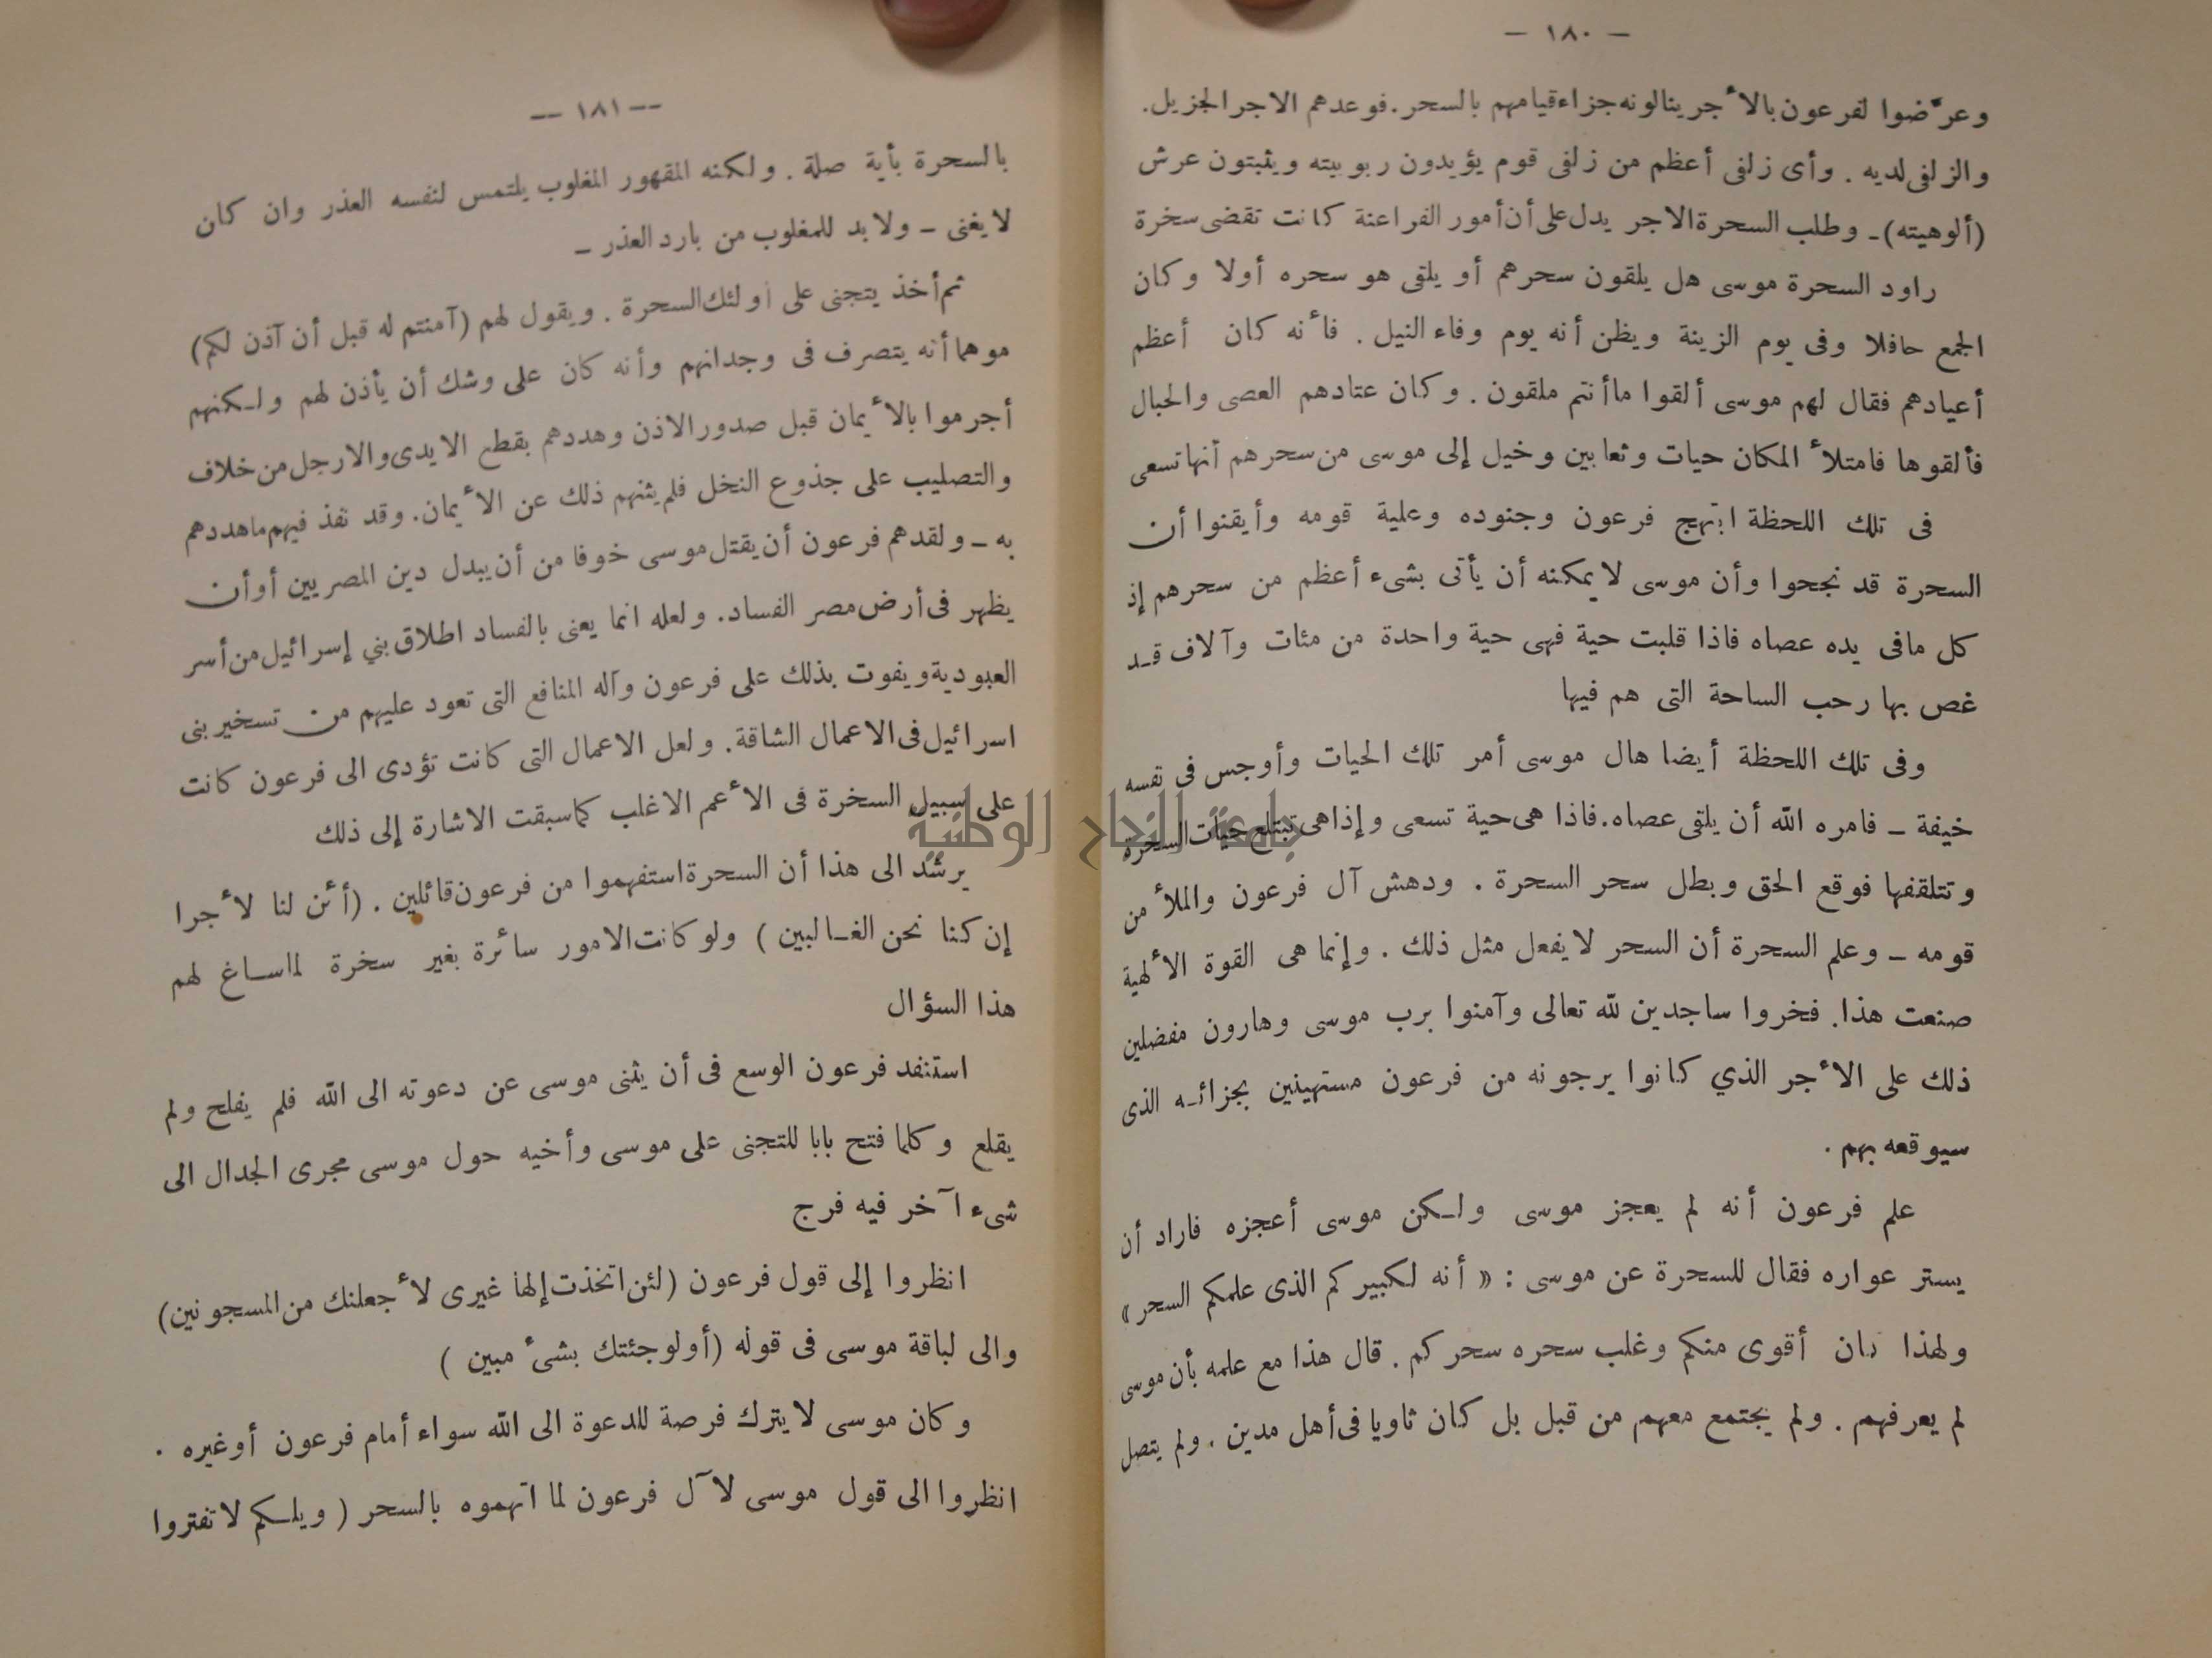 — ١٨٠ —
وعرَّضوا لفرعون بالأجر ينالونه جزاء قيامهم بالسحر. فوعدهم الاجر الجزيل.
والزلفى لديه . وأى زلفى أعظم من زلفى قوم يؤيدون ربوبيته ويثبتون عرش
(ألوهيته) ـ وطلب السحرة الاجر يدل على أن أمور الفراعنة كانت تقضى سخرة
راود السحرة موسى هل يلقون سحرهم أو يلقى هو سحره أولا وكان
الجمع حافلا وفى يوم الزينة ويظن أنه يوم وفاء النيل . فأنه كان أعظم
أعيادهم فقال لهم موسى ألقوا ما أنتم ملقون . وكان عتادهم العصى والحبال
فألقوها فامتلأ المكان حيات وثعابين وخيل إلى موسى من سحرهم أنها تسعى
فى تلك اللحظة ابتهج فرعون وجنوده وعلية قومه وأيقنوا أن
السحرة قد نجحوا وأن موسى لا يمكنه أن يأتى بشىء أعظم من سحرهم إذ
كل مافى يده عصاه فاذا قلبت حية فهى حية واحدة من مئات وآلاف قد
غص بها رحب الساحة التى هم فيها
وفى تلك اللحظة أيضا هال موسى أمر تلك الحيات وأوجس فى نفسه
خيفة ـ فامره الله أن يلقى عصاه. فاذا هى حية تسعى وإذا هى تبتلع حيات السحرة
وتتلقفها فوقع الحق وبطل سحر السحرة . ودهش آل فرعون والملأ من
قومه ـ وعلم السحرة أن السحر لا يفعل مثل ذلك . وإنما هى القوة الألهية
صنعت هذا. فخروا ساجدين لله تعالى وآمنوا برب موسى وهارون مفضلين
ذلك على الأجر الذي كانوا يرجونه من فرعون مستهينين بجزائه الذى
سيوقعه بهم .
علم فرعون أنه لم يعجز موسى ولكن موسى أعجزه فاراد أن
يستر عواره فقال للسحرة عن موسى : « أنه لكبيركم الذى علمكم السحر »
ولهذا كان أقوى منكم وغلب سحره سحركم . قال هذا مع علمه بأن موسى
لم يعرفهم . ولم يجتمع معهم من قبل بل كان ثاويا فى أهل مدين . ولم يتصل
— ١٨١ —
بالسحرة بأية صلة . ولكنه المقهور المغلوب يلتمس لنفسه العذر وان كان
لا يغنى ـ ولابد للمغلوب من بارد العذر ـ
ثم أخذ يتجنى على أولئك السحرة . ويقول لهم (آمنتم له قبل أن آذن لكم)
موهما أنه يتصرف فى وجدانهم وأنه كان على وشك أن يأذن لهم ولكنهم
أجرموا بالأيمان قبل صدور الاذن وهددهم بقطع الايدى والارجل من خلاف
والتصليب على جذوع النخل فلم يثنهم ذلك عن الأيمان. وقد نفذ فيهم ماهددهم
به ـ ولقدهم فرعون أن يقتل موسى خوفا من أن يبدل دين المصريين أو أن
يظهر فى أرض مصر الفساد. ولعله انما يعنى بالفساد اطلاق بني إسرائيل من أسر
العبودية ويفوت بذلك على فرعون وآله المنافع التى تعود عليهم من تسخير بنى
اسرائيل فى الاعمال الشاقة. ولعل الاعمال التى كانت تؤدى الى فرعون كانت
على سبيل السخرة فى الأعم الاغلب كما سبقت الاشارة إلى ذلك
يرشد الى هذا أن السحرة استفهموا من فرعون قائلين . (أئن لنا لأجرا
إن كنا نحن الغالبين ) ولو كانت الامور سائرة بغير سخرة لما ساغ لهم
هذا السؤال
استنفد فرعون الوسع فى أن يثنى موسى عن دعوته الى الله فلم يفلح ولم
يقلع وكلما فتح بابا للتجنى على موسى وأخيه حول موسى مجرى الجدال الى
شىء آخر فيه فرج
انظروا إلى قول فرعون (لئن اتخذت إلها غيرى لأجعلنك من المسجونين)
والى لباقة موسى فى قوله (أولو جئتك بشىء مبين )
وكان موسى لا يترك فرصة للدعوة الى الله سواء أمام فرعون أوغيره .
انظروا الى قول موسى لآل فرعون لما اتهموه بالسحر ( ويلكم لا تفتروا
جامعة النجاح الوطنية